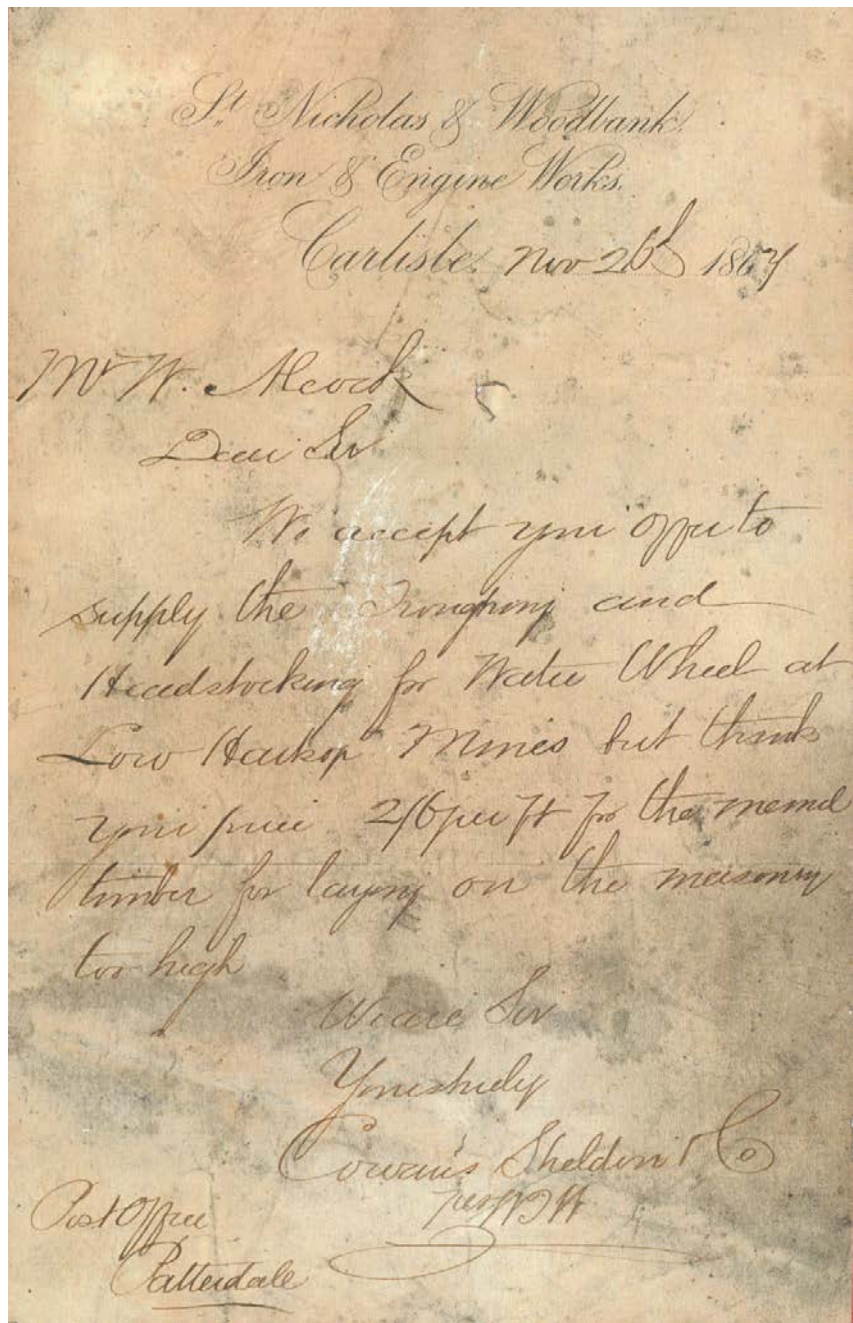 St. Nicholas & Woodbank
Iron & Engine Works.
Carlisle. Nov 26th 1867
Mr W. Alcock
Dear Sir
We accept your offer to
supply the Troughing and
Headstocking for Water Wheel at
Low Hartsop Mines but think
your price 2/6 per ft for the memel
timber for laying on the masonry
too high
We are Sir
Yours truly
Cowans Sheldon & Co
per
Post Office
Patterdale